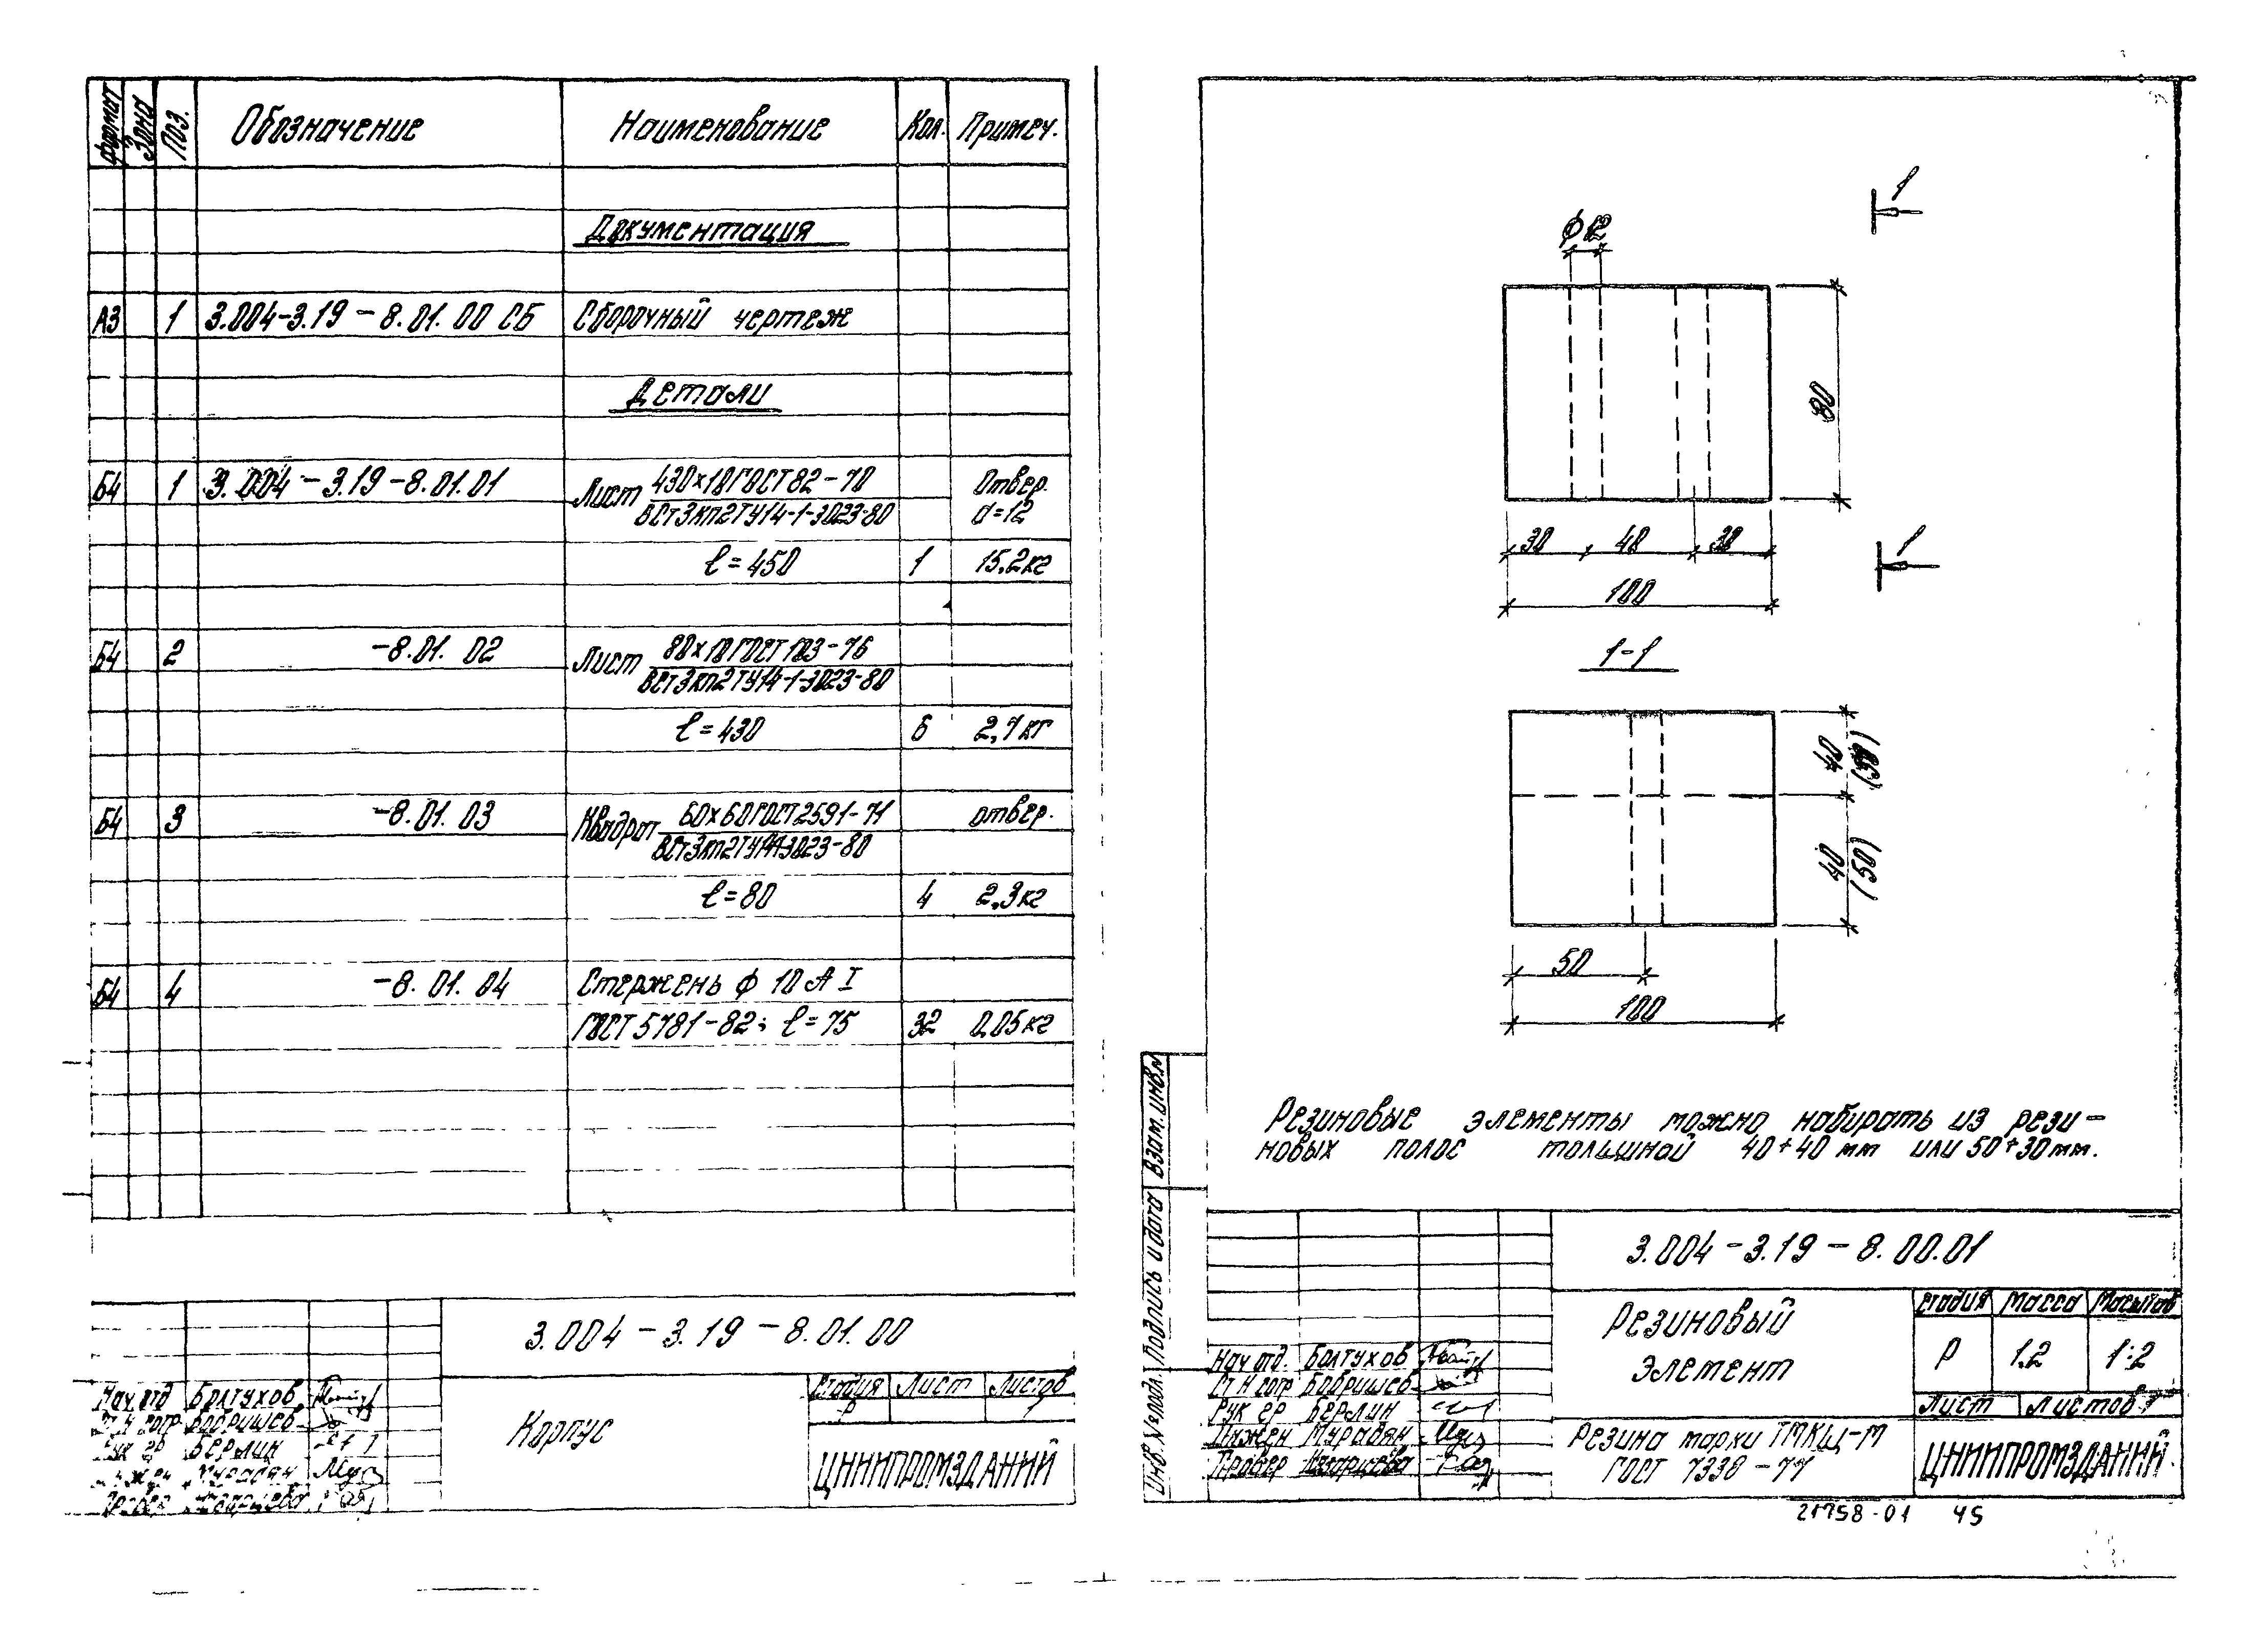 формат Зона Поз. Обозначение Наименование Кол. Примеч.
Документация
А3 1 3.004-3.19-8.01.00 СБ Сборочный чертеж
Детали
Б4 1 3.004-3.19-8.01.01 Лист 430х10 ГОСТ 82-70 Отвер.
ВСт3кп2ТУ14-1-3023-80 d=12
ℓ=450 1 15.2кг
Б4 2 -8.01.02 Лист 80х10 ГОСТ 103-76
ВСт3кп2ТУ14-1-3023-80
ℓ=430 6 2,7кг
Б4 3 -8.01.03 Квадрат 60х60 ГОСТ 2591-71 отвер.
ВСт3кп2ТУ14-1-3023-80
ℓ=80 4 2,3кг
Б4 4 -8.01.04 Стержень ф 10 А I
ГОСТ 5781-82; ℓ=75 32 0,05кг
3.004-3.19-8.01.00
Нач.отд Болтухов
Ст.н.сотр Бобришев
Рук гр Берлин
Корпус
Стадия Лист Листов
Р 1
ЦНИИПРОМЗДАНИЙ
1
ф12
80
30 40 30
1
100
1-1
40 (30)
40 (50)
50
100
Резиновые элементы можно набирать из рези-
новых полос толщиной 40+40 мм или 50+30мм.
Инв.№подл. Подпись и дата Взам.инв.№
3.004-3.19-8.00.01
Резиновый
элемент
Стадия Масса Масштаб
Р 1.2 1:2
Лист Листов 1
Нач отд. Болтухов
Ст н сотр Бобришев
Рук гр Берлин
Инжен Мурадян
Провер
Резина марки ТМКЩ-М
ГОСТ 7338-77
ЦНИИПРОМЗДАНИЙ
21758-01 45